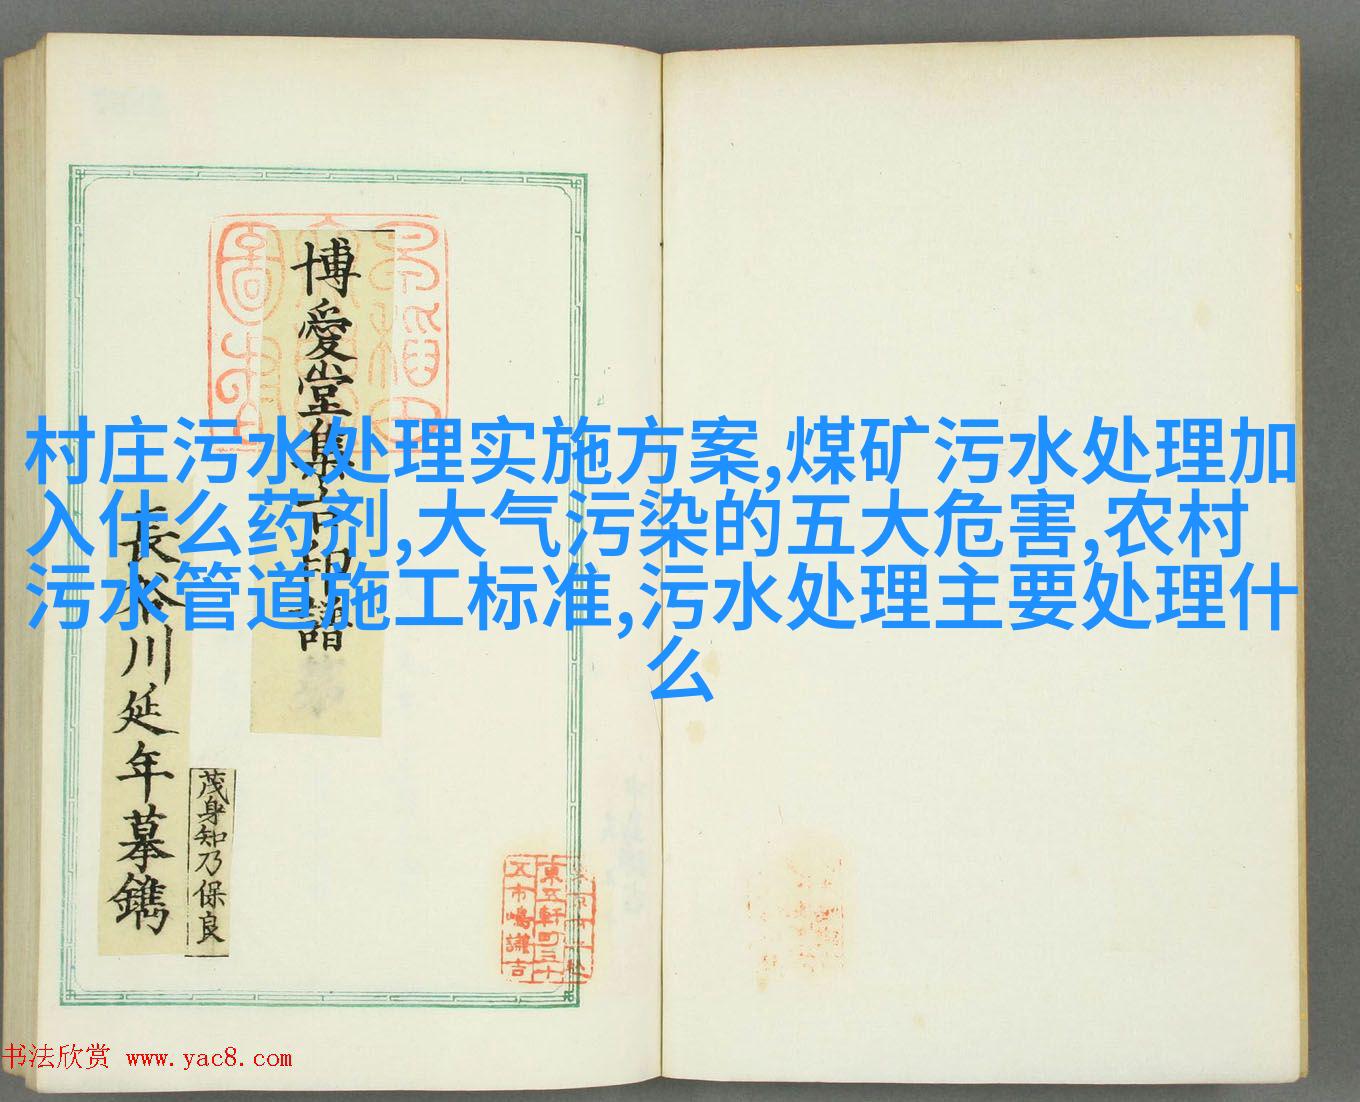 村庄污水处理实施方案,煤矿污水处理加
入什么药剂,大气污染的五大危害,农村
污水管道施工标准,污水处理主要处理什
么
博愛堂集古印譜
長谷川延年摹鐫
茂身知乃保良
東五軒町三十
五市嶋謙吉
书法欣赏 www.yac8.com